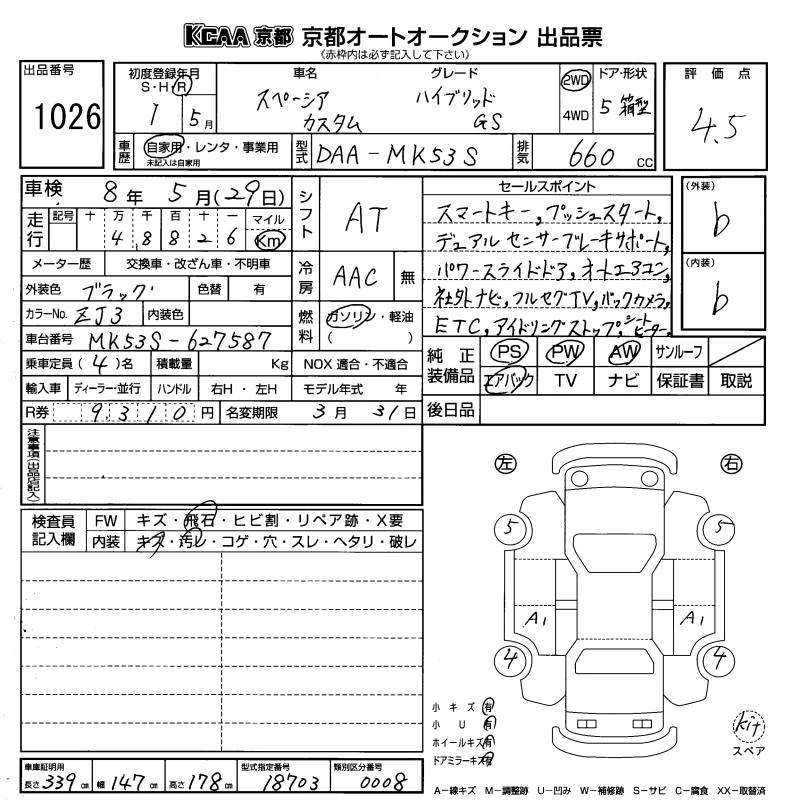 KCAA 京都 京都オートオークション 出品票
(赤枠内は必ず記入して下さい)
出品番号 1026
初度登録年月 S・H・R 1 5月
車名 スペーシア カスタム
グレード ハイブリッド GS
2WD 4WD
ドア・形状 5 箱型
評価点 4.5
車歴 自家用・レンタ・事業用 未記入は自家用
型式 DAA-MK53S
排気 660 cc
車検 8年 5月(29日)
シフト AT
走行 記号 十 万 千 百 十 一 マイル Km
4 8 8 2 6
メーター歴 交換車・改ざん車・不明車
冷房 AAC 無
外装色 ブラック 色替 有
カラーNo. ZJ3 内装色
燃料 ガソリン・軽油 ( )
車台番号 MK53S-627587
乗車定員 (4)名 積載量 Kg NOX 適合・不適合
輸入車 ディーラー・並行 ハンドル 右H・左H モデル年式 年
R券 9310円 名変期限 3月 31日
セールスポイント
スマートキー,プッシュスタート,
デュアルセンサーブレーキサポート,
パワースライドドア,オートエアコン,
社外ナビ,フルセグTV,バックカメラ,
ETC,アイドリングストップ,シートヒーター,
(外装) b
(内装) b
純正装備品 PS PW AW サンルーフ
エアバック TV ナビ 保証書 取説
後日品
注意事項(出品店記入)
検査員記入欄 FW キズ・飛石・ヒビ割・リペア跡・X要
内装 キズ・汚レ・コゲ・穴・スレ・ヘタリ・破レ
左 右
5 5
A1 A1
4 4
小キズ 有
小U 有
ホイールキズ 有
ドアミラーキズ 有
kit
スペア
車庫証明用 長さ 339cm 幅 147cm 高さ 178cm 型式指定番号 18703 類別区分番号 0008
A-線キズ M-調整跡 U-凹み W-補修跡 S-サビ C-腐食 XX-取替済